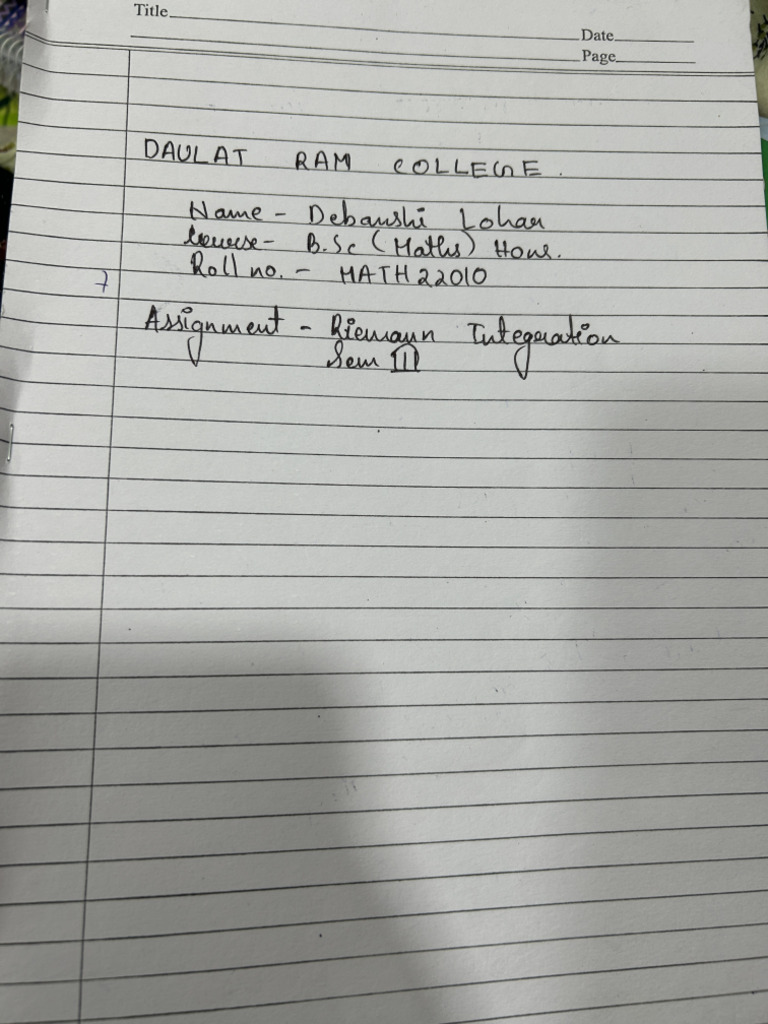 Title
Date
Page
DAULAT RAM COLLEGE.
Name - Debanshi Lohar
Course - B.Sc (Maths) Hons.
Roll no. - MATH22010
7
Assignment - Riemann Integeration
Sem III